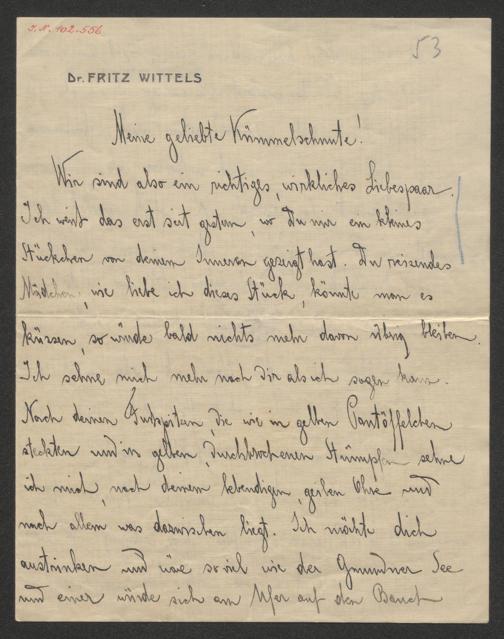 J.N. 102.556
53
Dr. FRITZ WITTELS
Meine geliebte Kümmelschnute!
Wir sind also ein richtiges, wirkliches Liebespaar.
Ich weiß das erst seit gestern, wo Du mir ein kleines
Stückchen von deinem Inneren gezeigt hast. Du reizendes
Mädchen, wie liebe ich dieses Stück, könnte man es
küssen, so würde bald nichts mehr davon übrig bleiben.
Ich sehne mich mehr nach Dir als ich sagen kann.
Nach deinen Fußspitzen, die wie in gelben Pantöffelchen
steckten und in gelben, durchbrochenen Strümpfen sehne
ich mich, nach deinem lebendigen, Ohr und
nach allem was dazwischen liegt. Ich möchte dich
austrinken und wäre soviel wie der Gmundner See
und einer würde sich am Ufer auf den Bauch